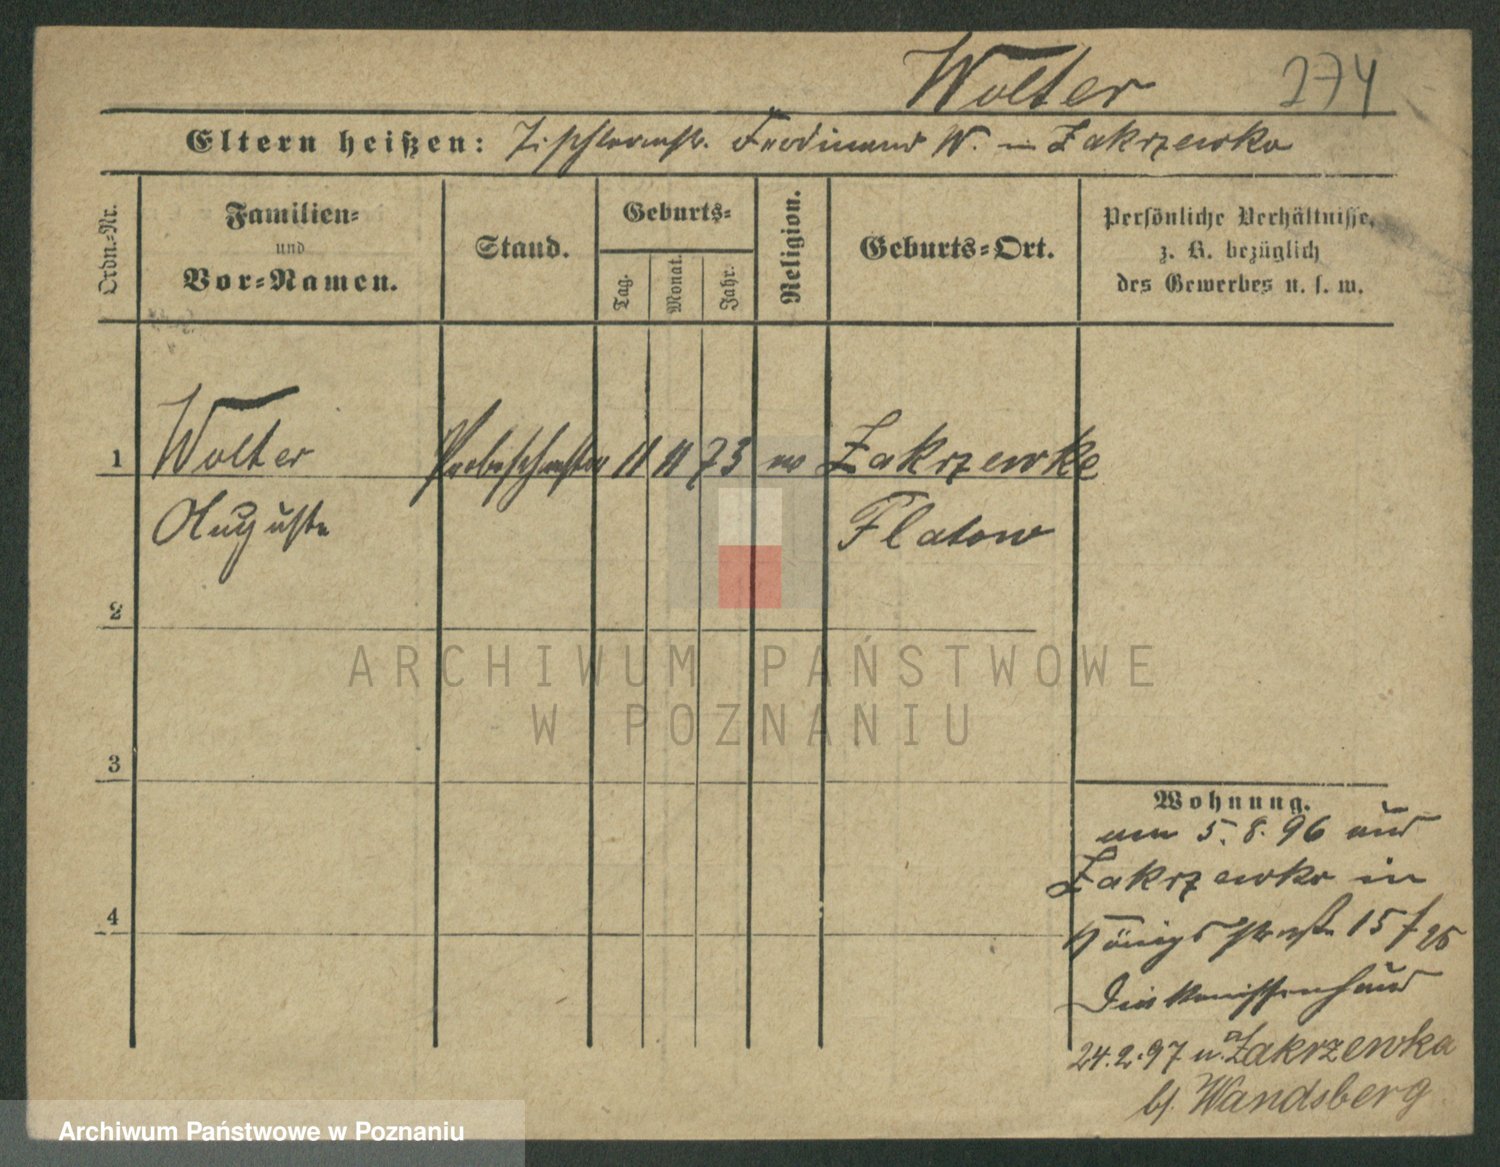 Wolter 274
Eltern heißen: Tischlermstr. Ferdinand W. in Zakrzewko
Ordn.-Nr.
Familien-
und
Vor-Namen.
Stand.
Geburts-
Tag.
Monat.
Jahr.
Religion.
Geburts-Ort.
Persönliche Verhältnisse,
z. B. bezüglich
des Gewerbes u. s. w.
1 Wolter Probeschwester 11 11 73 ev Zakrzewke
Auguste Flatow
2
3
4
ARCHIWUM PAŃSTWOWE
W POZNANIU
Wohnung.
am 5.8.96 aus
Zakrzewko in
Königstraße 15
Diakonissenhaus
24.2.97 n. Zakrzewka
b/ Wandsberg
Archiwum Państwowe w Poznaniu